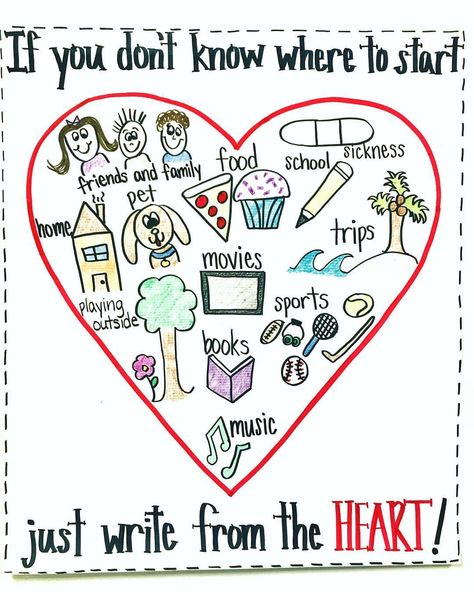 If you don't know where to start
friends and family
food
school
sickness
pet
home
trips
movies
playing
outside
sports
books
music
just write from the HEART!